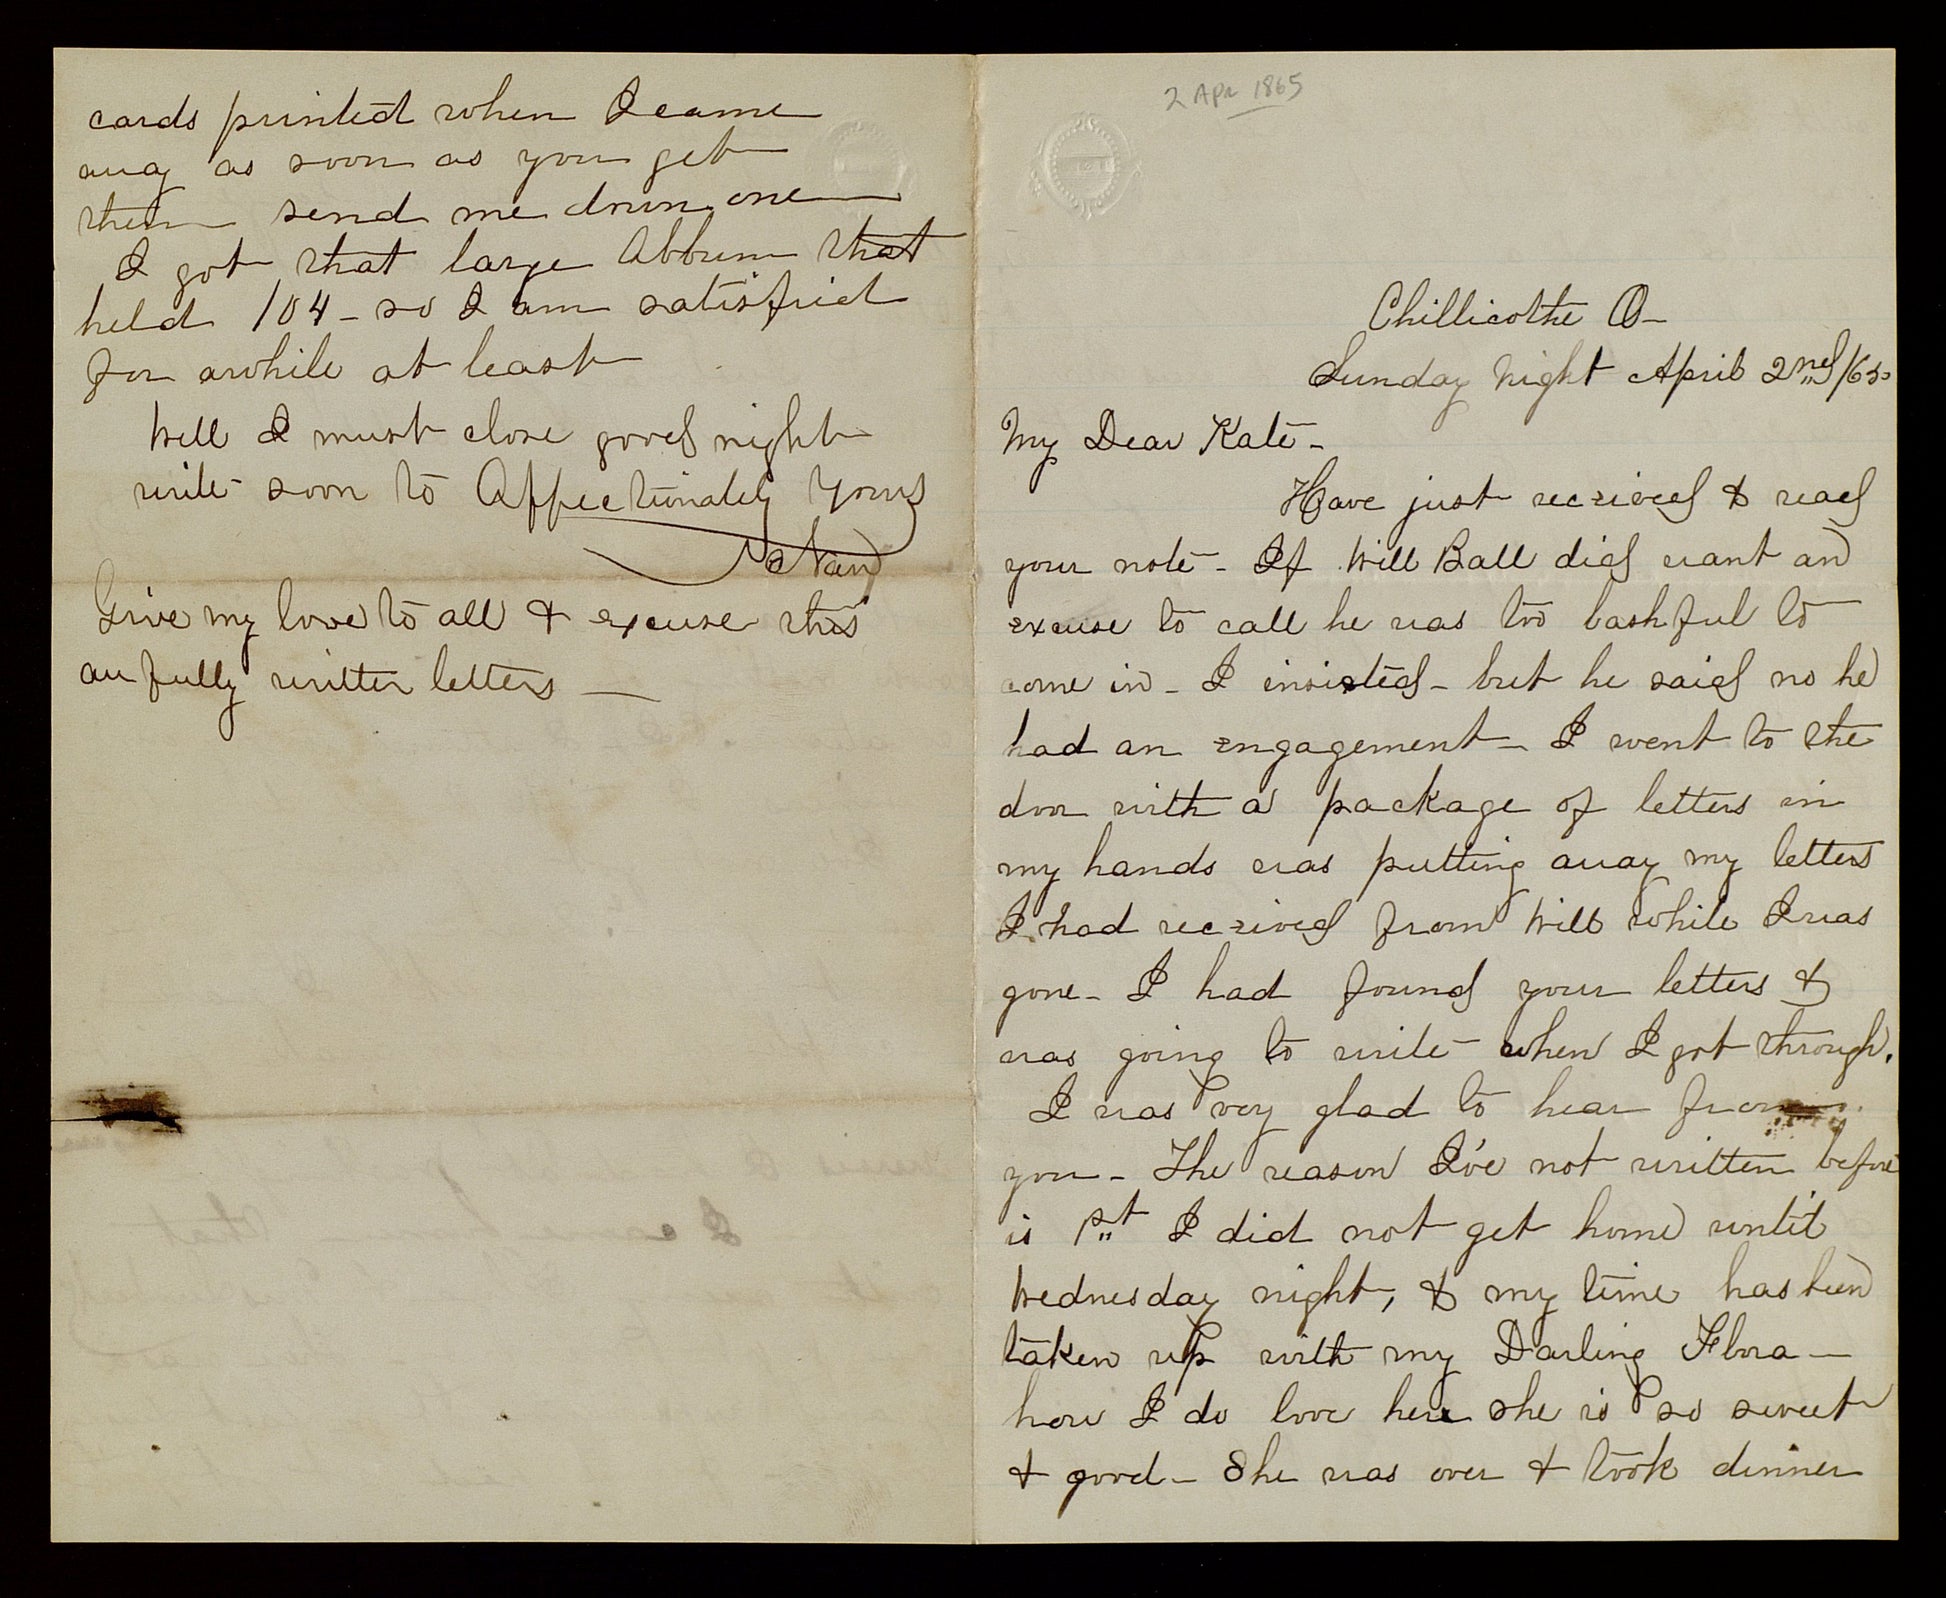 cards printed when I came
away as soon as you get
them send me down one
I got that large Album that
held 104 - so I am satisfied
for awhile at least
Well I must close good night
write soon to Affectionately Yours
Nan
Give my love to all & excuse this
awfully written letters —
2 Apr 1865
Chillicothe O-
Sunday Night April 2nd/65
My Dear Kate -
Have just received & read
your note - If Will Ball did want an
excuse to call he was too bashful to
come in - I insisted - but he said no he
had an engagement - I went to the
door with a package of letters in
my hands was putting away my letters
I had received from Will while I was
gone - I had found your letters &
was going to write when I got through.
I was very glad to hear from
you - The reason I've not written before
is 1st I did not get home until
Wednesday night, & my time has been
taken up with my Darling Flora —
how I do love her she is so sweet
& good - She was over & took dinner